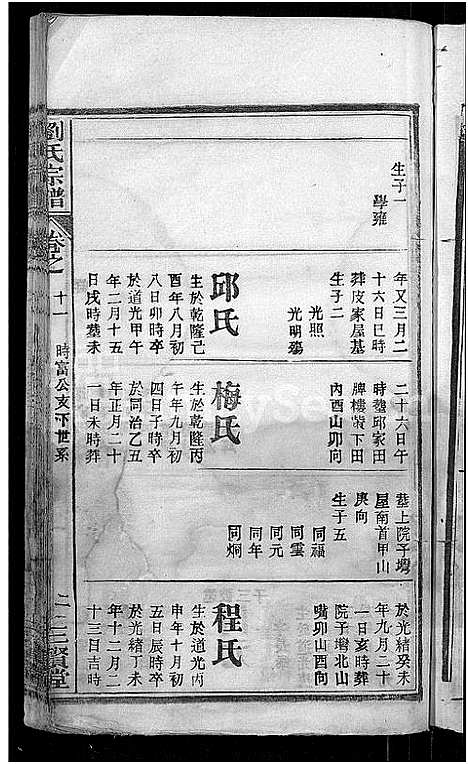 生子一
學雍
年又三月二
十六日巳時
葬皮家屋基
生子二
光照
光明殤
邱氏
生於乾隆己
酉年八月初
八日卯時卒
於道光甲午
年二月十五
日戌時塟未
二十六日午
時塟邱家田
牌樓裳下田
內酉山卯向
梅氏
生於乾隆丙
午年九月初
四日子時卒
於同治乙丑
年正月二十
一日未時葬
塟上院子壪
屋南首甲山
庚向
生子五
同福
同雲
同元
同年
同炯
於光緒癸未
年九月二十
一日亥時葬
院子壪北山
嘴卯山酉向
程氏
生於道光丙
申年十月初
五日辰時卒
於光緒丁未
年十二月二
十三日吉時
劉氏宗譜
卷之十一
時富公支下世系
二
三賢堂